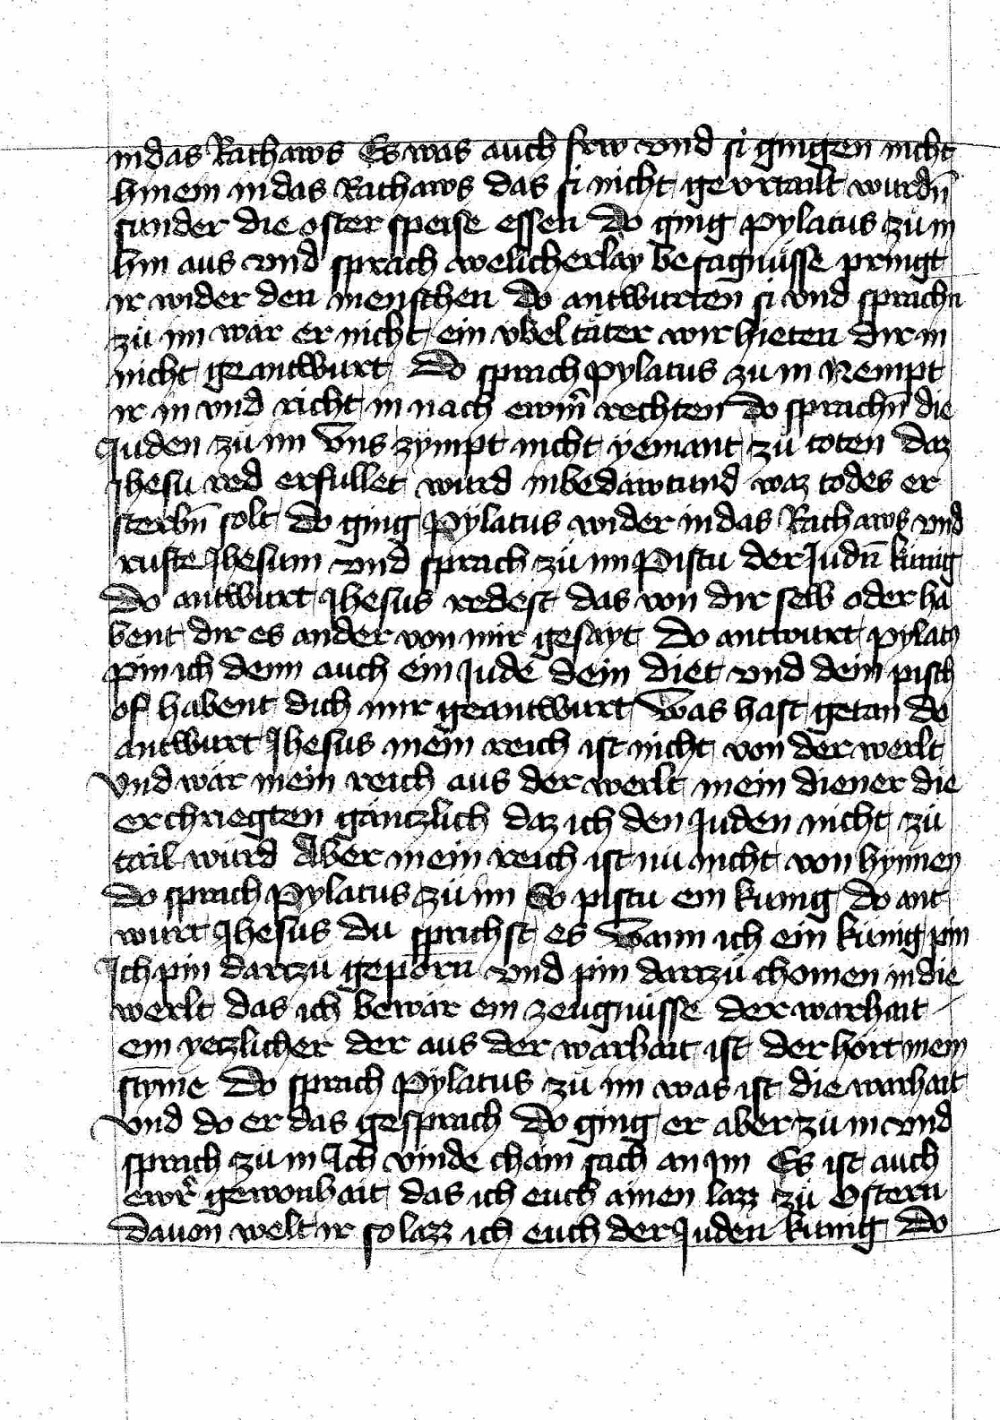 in das Rathaws Es was auch frw vnd si gingen nicht
hinein in das Rathaws das si nicht geurtailt wurdn̄
sunder die oster speise essen Do ging Pylatus zu in
hin aus vnd sprach welicherlay besagnüsse pringt
ir wider den menschen Do antwurten si vnd sprachn
zü im wär er nicht ein vbeltäter wir hieten dir in
nicht geantwurt Do sprach Pylatus zu in Nempt
ir in vnd richt in nach ewrn̄ rechten Do sprachn̄ die
Juden zü im Vns zympt nicht yemant zü toten Daz
Jhesu red erfullet wurd in bedäwtund waz todes er
sterbn̄ solt Do ging Pylatus wider in das Rathaws vnd
rufte Jhesum vnd sprach zü im Pistu der Judn̄ künig
Do antwurt Jhesus redest das von dir selb oder ha
bent dir es ander von mir gesayt Do antwurt Pylatus
pin ich denn auch ein Jude dein diet vnd dein pisch
of habent dich mir geantwurt Was hast getan do
antwurt Jhesus mein reich ist nicht von der werlt
Vnd wär mein reich aus der werlt mein diener die
erchriegten gäntzlich daz ich den Juden nicht zü
tail würd Aber mein reich ist nu nicht von hynnen
Do sprach Pylatus zü im So pistu ein kunig do ant
wurt Jhesus du sprichst es Wann ich ein künig pin
Ich pin dartzu geporn̄ vnd pin dartzü chomen in die
werlt das ich bewär ein zeugnüsse der warhait
ein yetzlicher der aus der warhait ist der hört mein
styme Do sprach Pylatus zü im was ist die warhait
Vnd do er das gesprach Do ging er aber zu in vnd
sprach zü in Ich vinde chain sach an im Es ist auch
ewr gewonhait das ich euch ainen lazz zü Ostern
Dauon welt ir so lazz ich euch der Juden künig Do